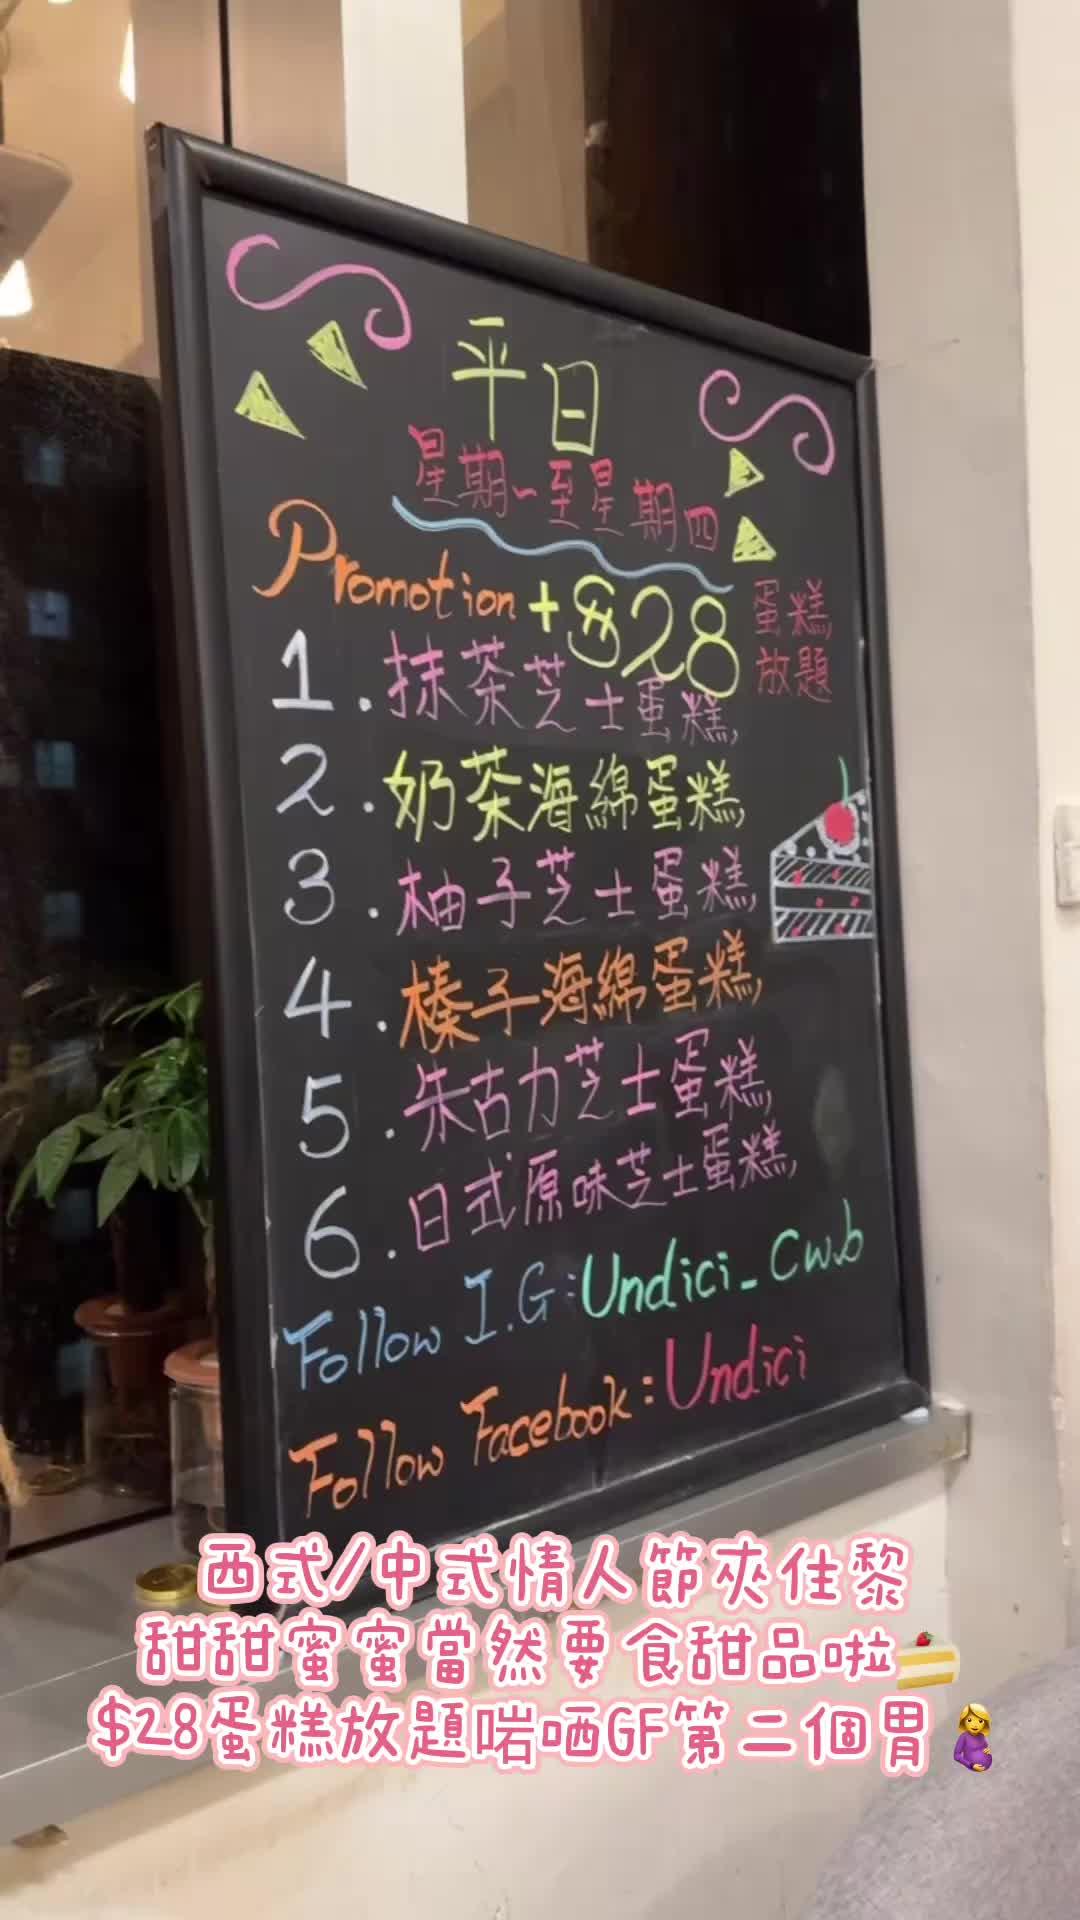 平日
星期一至星期四
Promotion +$28 蛋糕
放題
1. 抹茶芝士蛋糕
2. 奶茶海綿蛋糕
3. 柚子芝士蛋糕
4. 榛子海綿蛋糕
5. 朱古力芝士蛋糕
6. 日式原味芝士蛋糕
Follow I.G:Undici_Cwb
Follow Facebook:Undici
西式/中式情人節夾住黎
甜甜蜜蜜當然要食甜品啦🍰
$28蛋糕放題啱哂GF第二個胃🤰